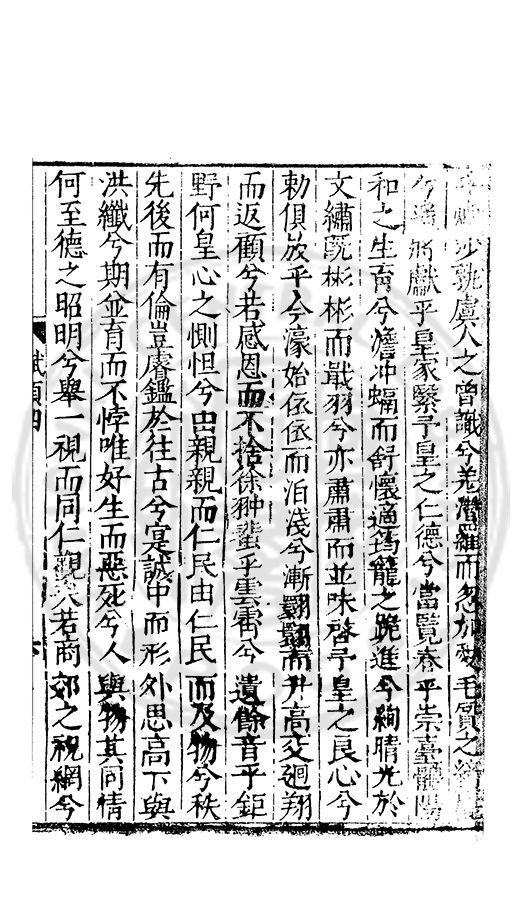 沙孰虞人之曾譏兮羌潛羅而忽加
毛質之
兮將獻乎皇家繄予皇之仁德兮當覽春乎崇臺體陽
和之生育兮澹冲融而舒懷適筠籠之跪進兮絢晴光於
文繡既彬彬而戢羽兮亦肅肅而並味啓予皇之良心兮
勅俱放乎今濠始依依而泊淺兮漸翾翾而升高交廻翔
而返顧兮若感恩而不捨徐翀翥乎雲霄兮遺餘音乎鉅
野何皇心之惻怛兮由親親而仁民由仁民而及物兮秩
先後而有倫豈睿鑑於往古兮寔誠中而形外思高下與
洪纖兮期並育而不悖唯好生而惡死兮人與物其同情
何至德之昭明兮舉一視而同仁觀人若商郊之祝網兮
賦類四